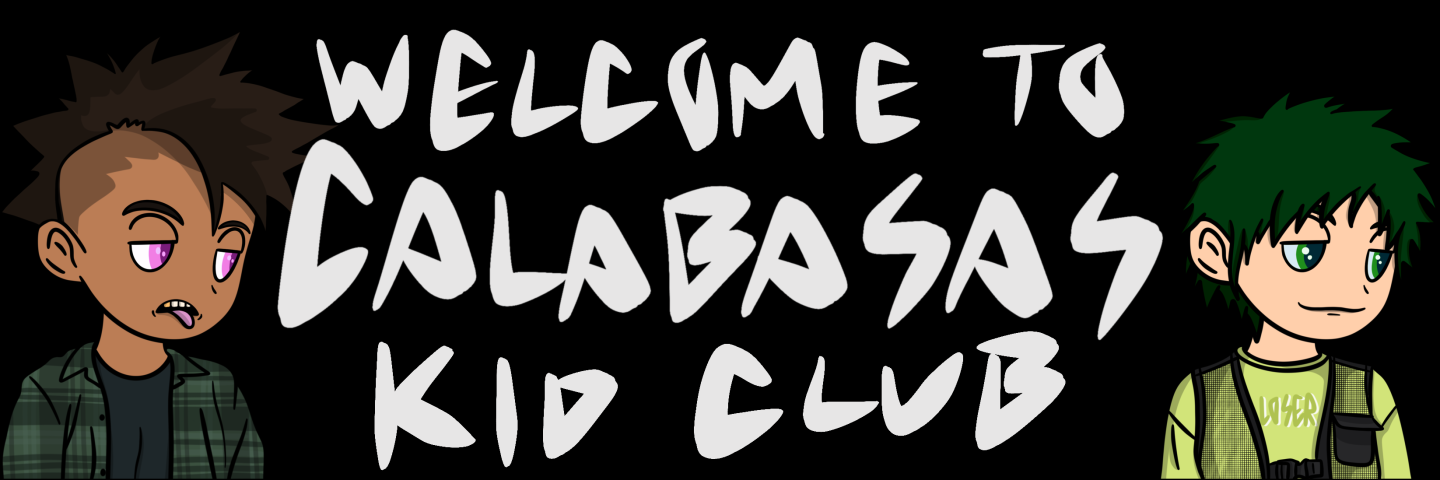 WELCOME TO
CALABASAS
KID CLUB
LOSER